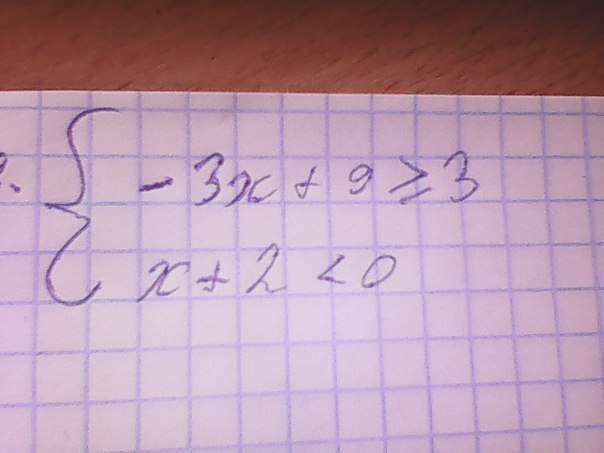 { -3x + 9 ≥ 3
x + 2 < 0